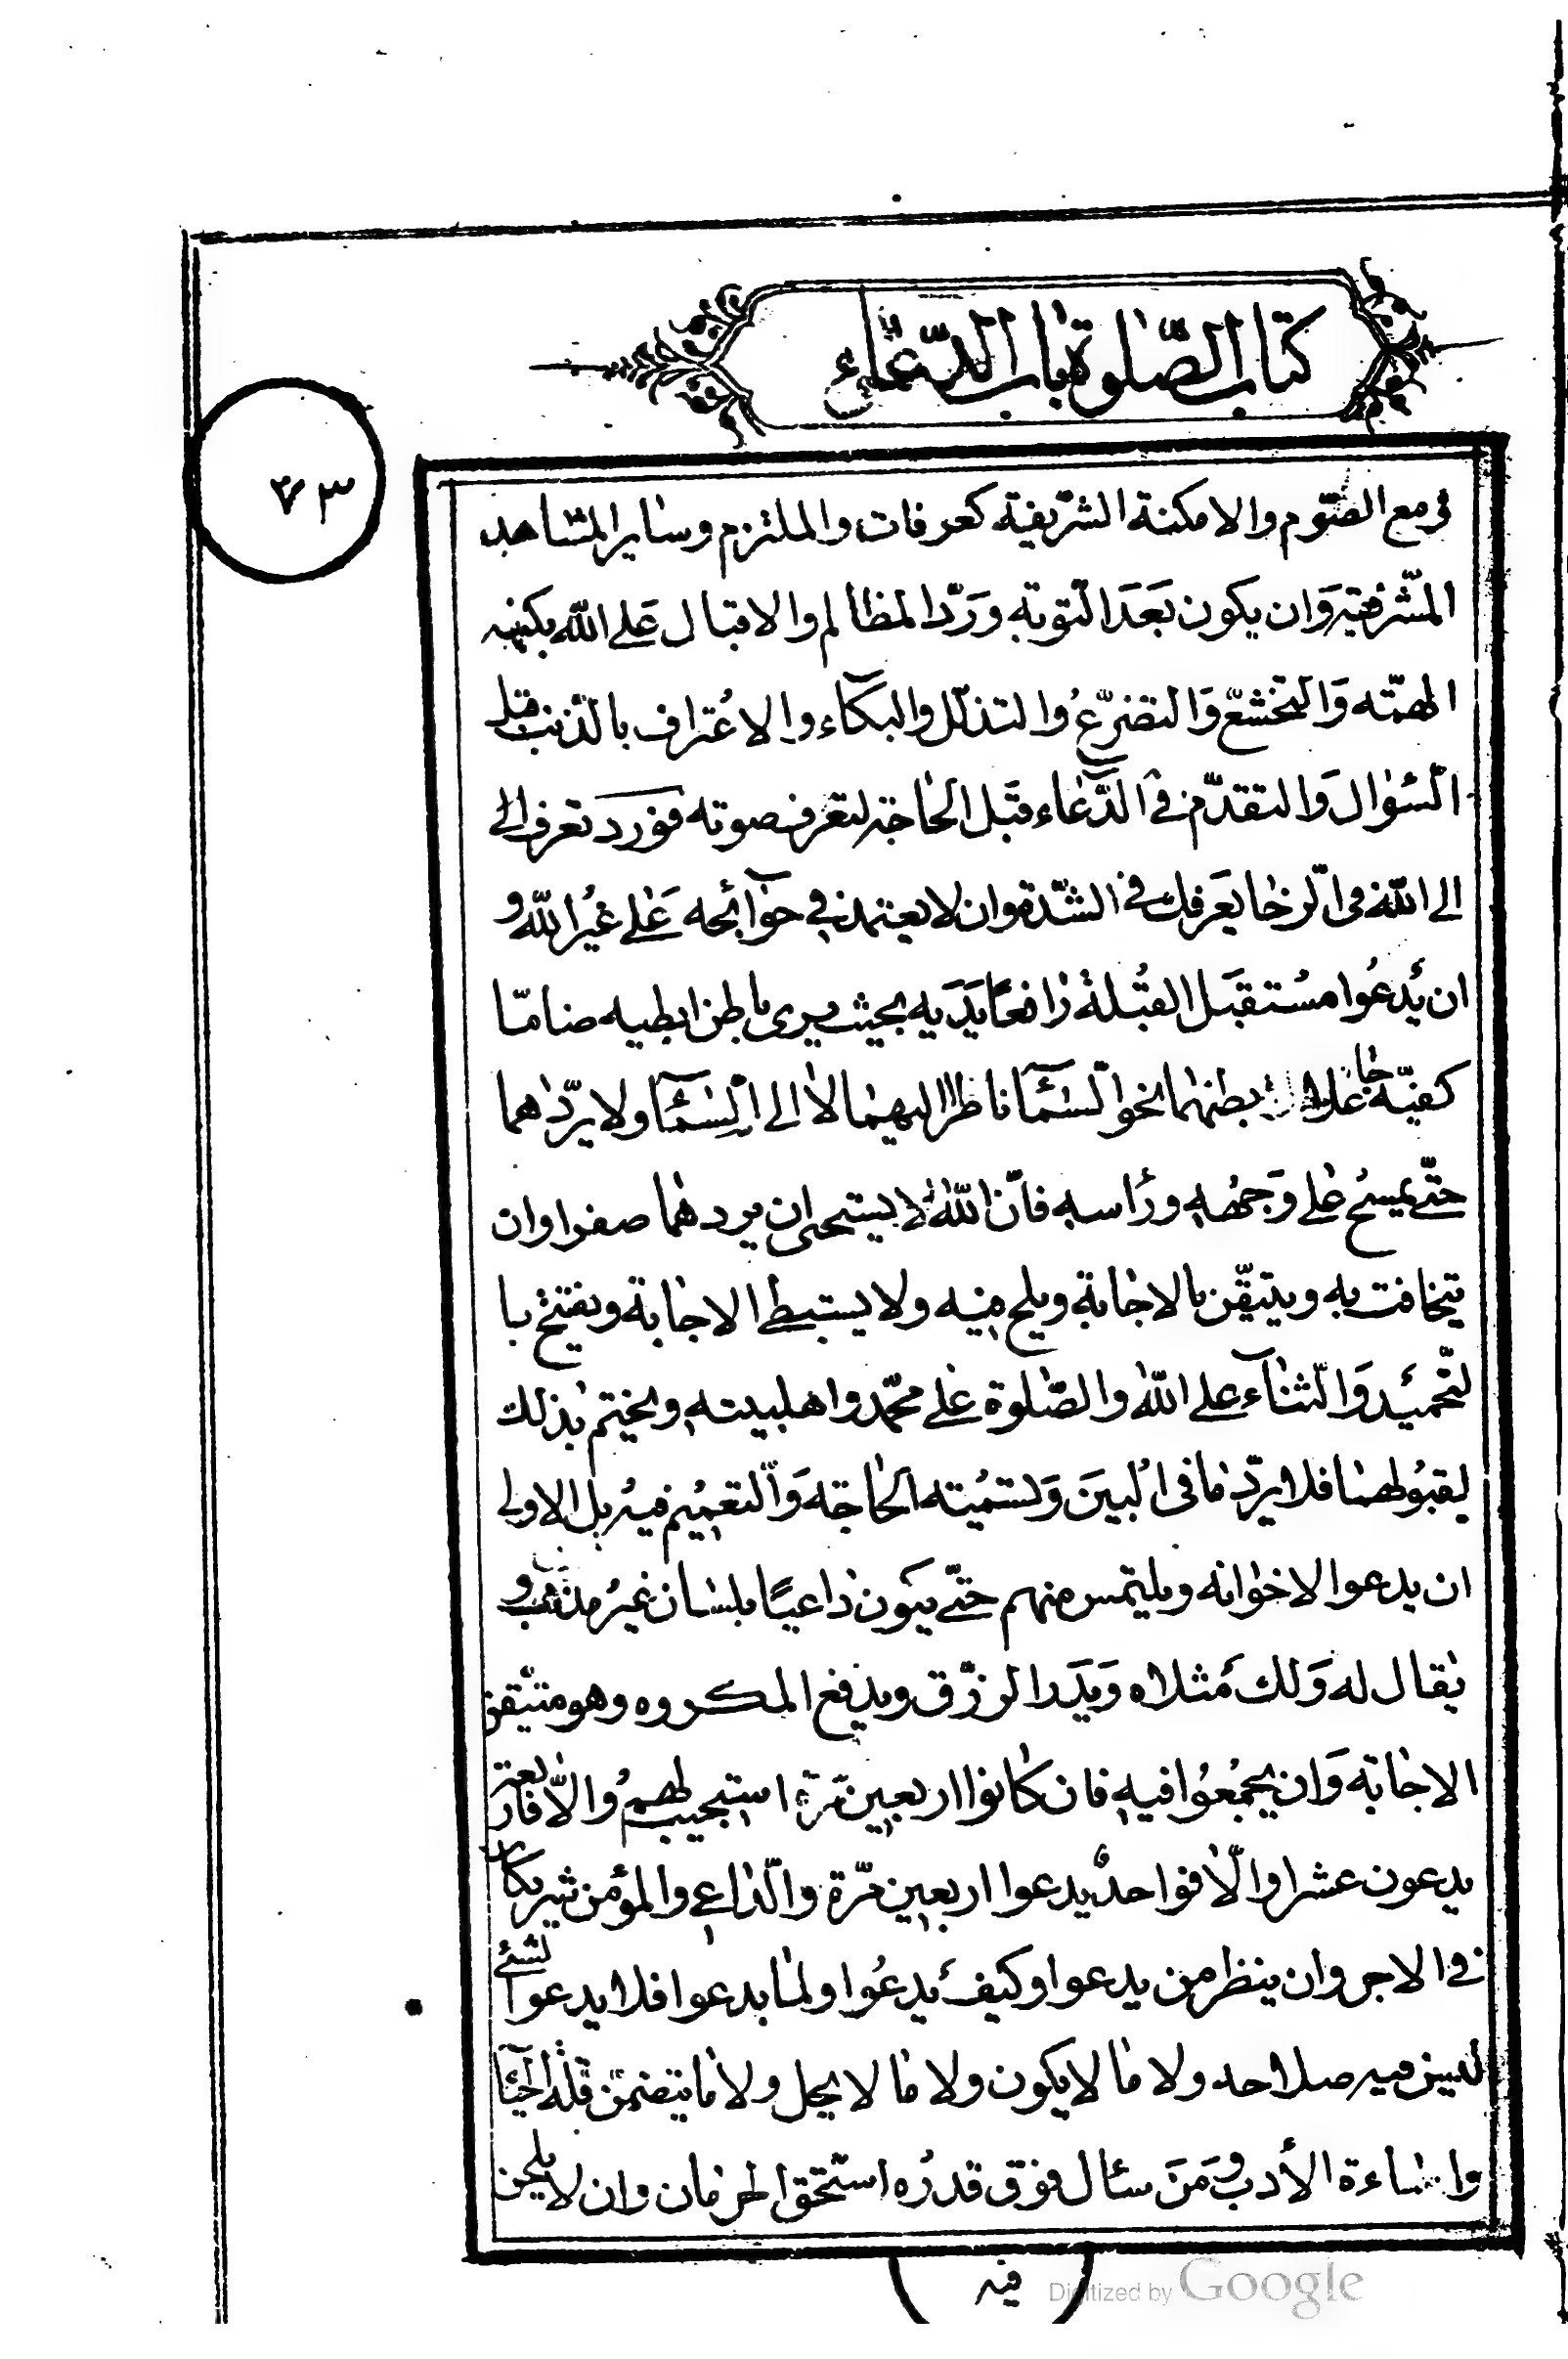 كتاب الصّلوة باب الدّعاء
٧٣
في مع الصّوم والامكنة الشّريفة كعرفات والملتزم وساير المشاهد
المشّرفة وَان يكون بَعدَ التّوبة وَرَدّ المظالم والاقبال عَلى اللّه بكنه
الهمّته وَالتخشعّ وَالتضرّعُ والتذلّل والبكآء والاعُتراف بالذنب قبل
السّئوال وَالتقدّم في الدّعآء قَبل الحاجة لتعرف صوته فورد تعرف الى
الى اللّه في الرّخا يعَرفك في الشّدة وان لا يعتمد في حوآئجه عَلى غيُر اللّه و
ان يَُدعُوا مسُتقبَل القبُلة رافعًا يَدَيه بحيث يرى باطن ابطيه ضامّا
كفيّه جاعلا بطنهما نحو السّمَآء ناظرا اليهما لا الى السّمَآء ولا يردّهما
حتّى يمسحُ على وَجهُه ورٔاسه فانّ اللّه لا يستحى ان يردهما صفرا وان
يتخافت به ويتيقّن بالاجابة ويلح فيه ولا يستبطئ الاجابة ويفتتح با
لتّحمئد وَالثّنآء على اللّه والصّلوة عَلى محمّد واهلبيته ويختم بذلك
ليقبوُلهما فلا يردّ ما في البيَن وَلتسميُته الحاجة وَالتعميُم فيه بل الاولى
ان يدعوا لاخوانه ويلتمس منهم حتّى يكون داعيًا بلسان غيرُ مذنب و
يقال له وَلك مٔثلاه وَيدَر الرزّق ويدفع المكروه وهو متيّقن
الاجابة وَان يجمُعُوا فيه فان كانوا اربعين مرّة استجيب لهمُ والّا فاربعة
يدعون عشرا والّا فواحدٌ يدعوا اربعين مرّة والدّاعي والمؤمن شريكان
في الاجر وان ينظر من يدعوا وكيف ئدعُوا ولما يدعوا فلا يدعوا لشئ
ليس فيه صلاحه ولا ما لا يكون ولا ما لا يحل ولا ما يتضمّن قلّة الحيٓا
واساءة الأدب وَمَن سئال فوق قدرُه استحق الحرمان وان لا يلحن
فيه
Digitized by Google